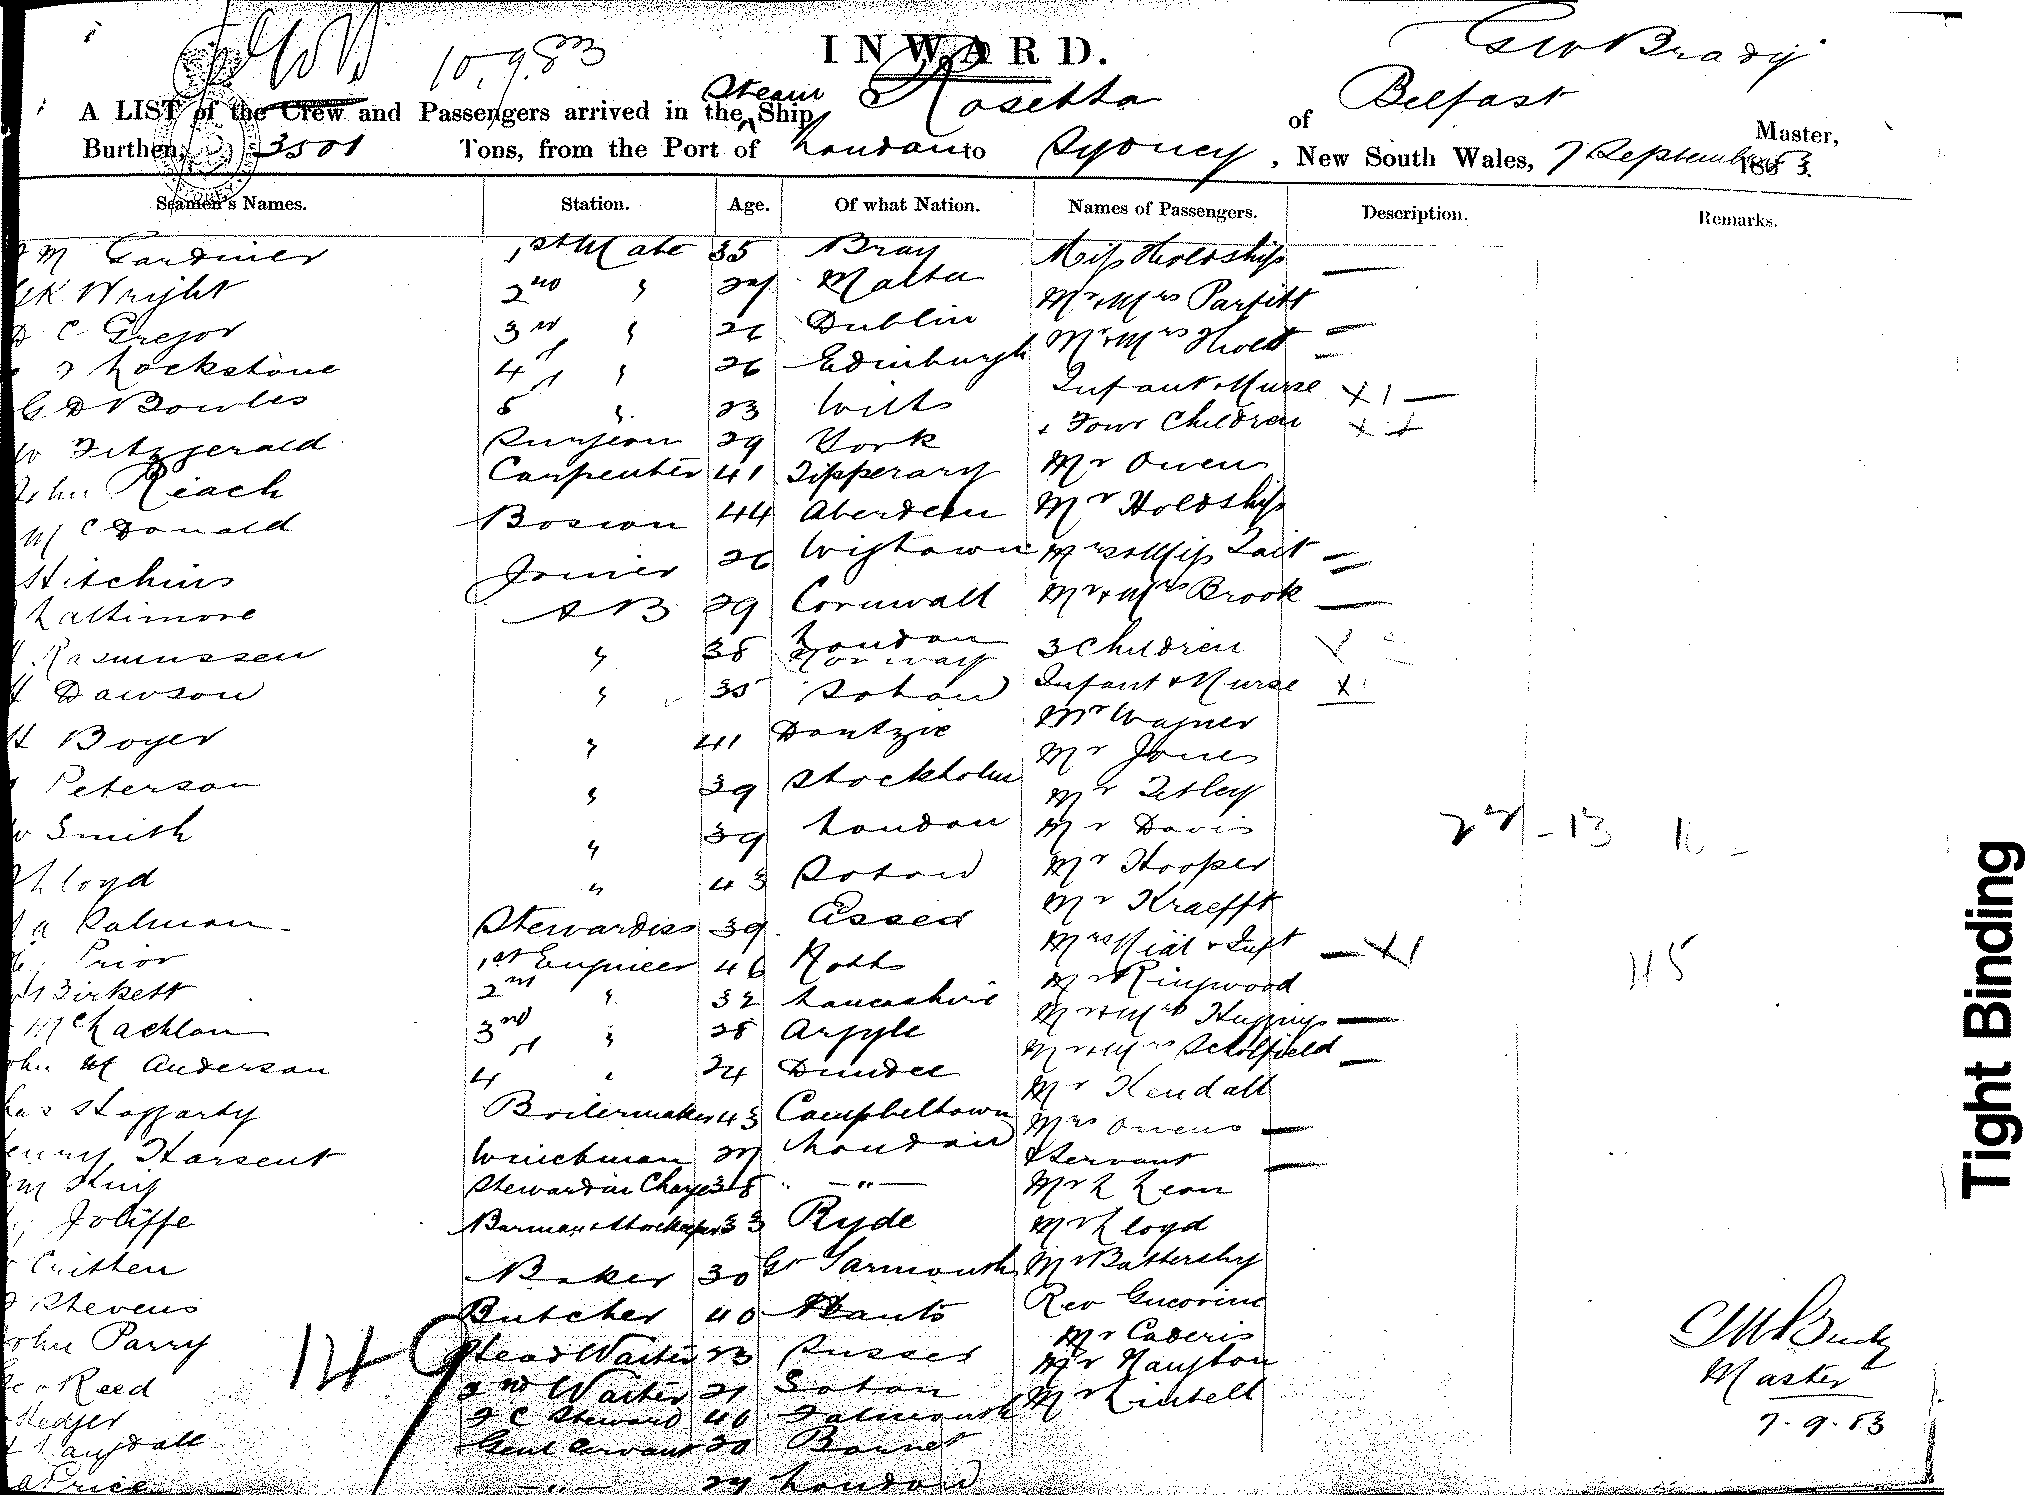 10.9.83
INWARD.
G W Brady
A LIST of the Crew and Passengers arrived in the Steam Ship Rosetta of Belfast
Master,
Burthen, 3501 Tons, from the Port of London to Sydney, New South Wales, 7 September 1883.
Seamen's Names. Station. Age. Of what Nation. Names of Passengers. Description. Remarks.
M Gardiner 1st Mate 35 Bray Miss Holdship —
K Wright 2nd " 27 Malta Mr & Mrs Parfitt
C Gregor 3rd " 26 Dublin Mr & Mrs Holt —
Lockstone 4 " 26 Edinburgh Infant & Nurse X 1 —
G D Bowles 5 " 23 Wilts & Four Children
W Fitzgerald Surgeon 29 York Mr Owen
John Reach Carpenter 41 Tipperary Mr Holdship
McDonald Bosson 44 Aberdeen Mrs & Miss Tait
Hitchins Joiner 26 Wigtown Mr & Mrs Brook —
Lattimore A B 29 Cornwall 3 Children
Rasmussen " 38 London Norway Infant & Nurse
H Dawson " 35 Soton Mr Wagner
H Boyer " 41 Dantzic Mr Jones
Peterson " 39 Stockholm Mr Tetley
W Smith " 39 London Mr Davis
Lloyd " 43 Soton Mr Hooper
Salmon Stewardess 39 Mr Kraefft
Prior 1st Engineer 46 Notts Mrs & Inft — X1
Birkett 2nd " 32 Lancashire Mr Ringwood
McLachlan 3rd " 28 Argyle Mr & Mrs Huggins —
John M Anderson 4 " 24 Dundee Mr & Mrs Scholfield —
Chas Haggarty Boilermaker 43 Campbeltown Mr Kendall
Henry Harsent Winchman 27 London Mrs Owens —
King Steward in Charge 38 " — " — & Servant —
Joliffe Barman & Storekeeper 33 Ryde Mr L Leon
Critten Baker 30 Gt Yarmouth Mr Lloyd
Stevens Butcher 40 Hants Mr Battersby
John Parry Head Waiter 23 Sussex Rev Guerrini
Geo Reed 2nd Waiter 21 Soton Mr Caderis
Hedger 2 C Steward 40 Falmouth Mr Naughton
Langdall Genl Servant 20 Barnet Mr Lintell
Price — " — 29 London
149
115
Master
7-9-83
Tight Binding